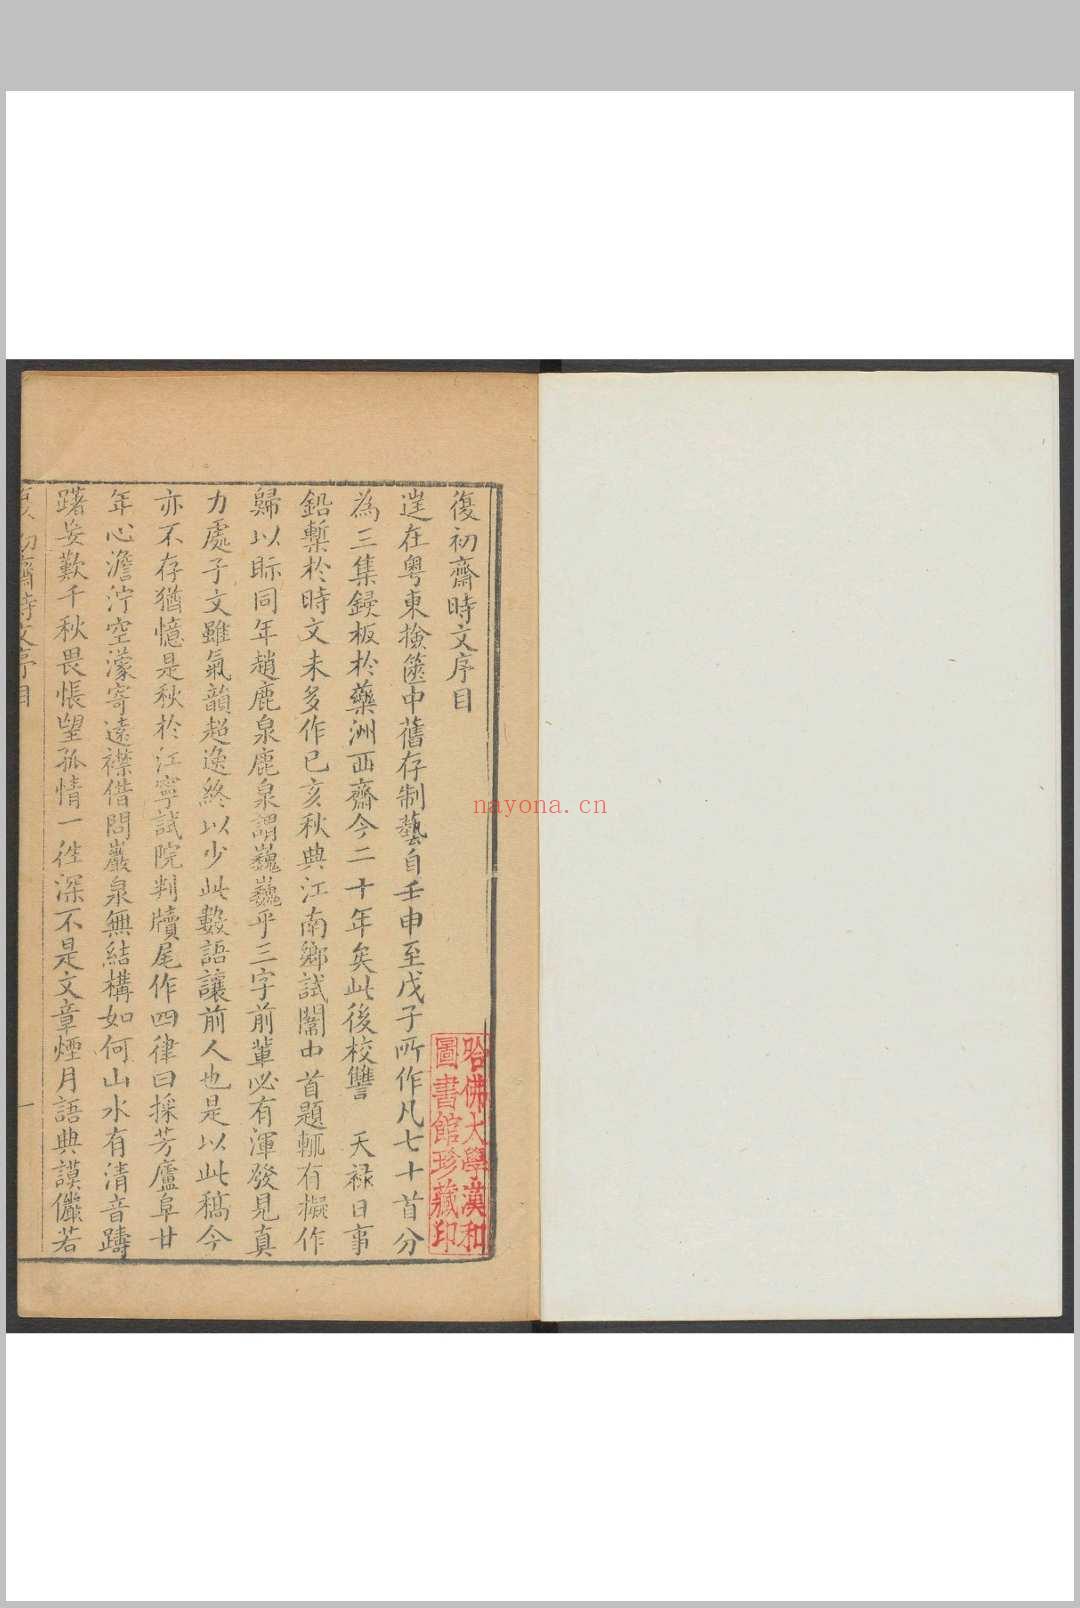 復初齋時文序目
迋在粤東撿篋中舊存制藝自壬申至戊子所作凡七十首分
為三集鋟板於藥洲西齋今二十年矣此後校讐 天祿日事
鉛槧於時文未多作已亥秋典江南鄉試闈中首題輒有擬作
歸以眎同年趙鹿泉鹿泉謂巍巍乎三字前輩必有渾發見真
力處子文雖氣韻超逸終以少此數語讓前人也是以此稿今
亦不存猶憶是秋於江寧試院判牘尾作四律曰採芳廬阜廿
年心澹泞空濛寄遠襟借問巖泉無結構如何山水有清音躊
躇妄歎千秋畏悵望孤情一往深不是文章煙月語典謨儼若
初齋時文序目
一
哈佛大學漢和
圖書館珍藏印
nayona.cn